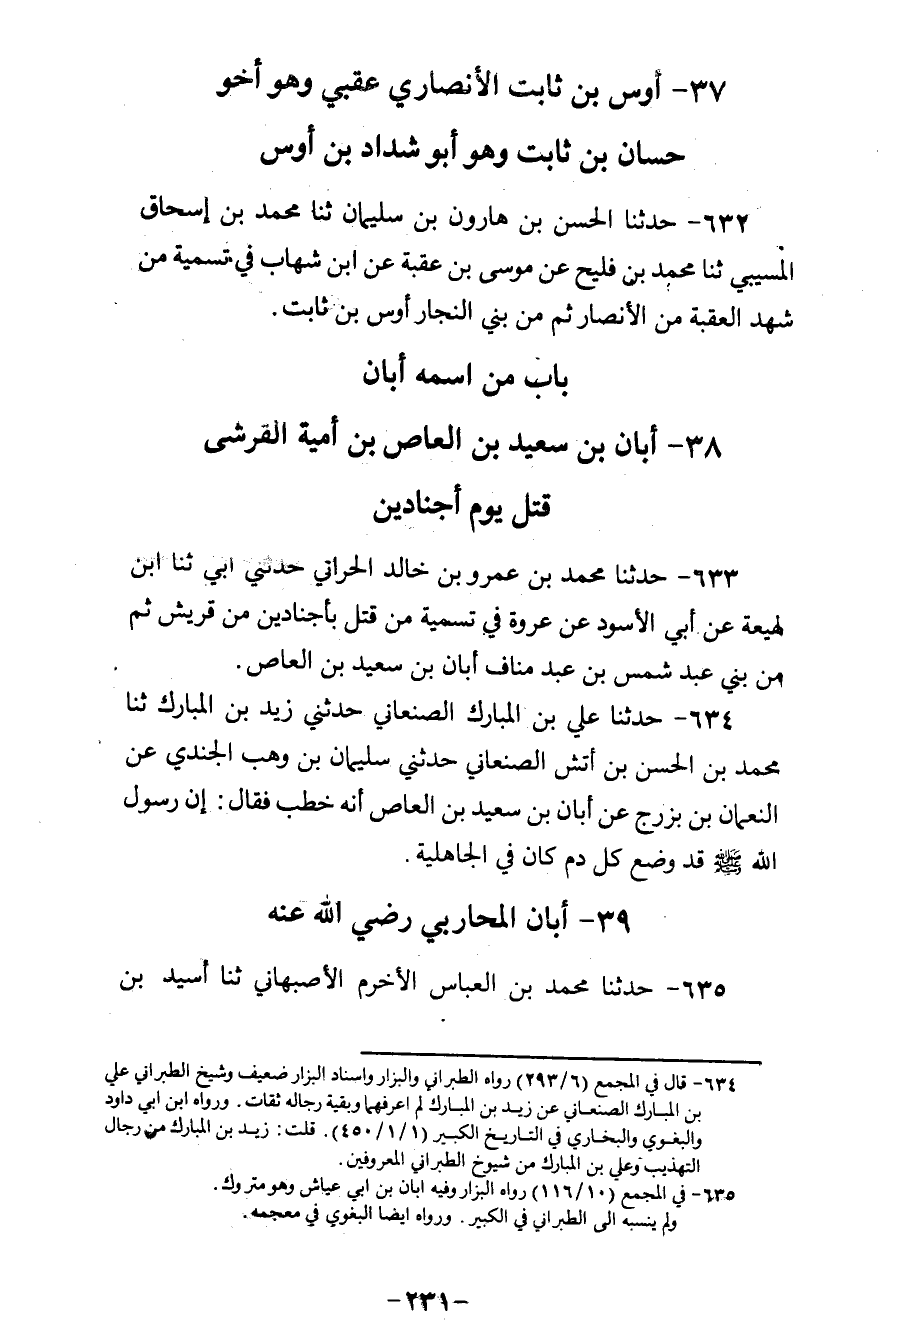 ٣٧- أوس بن ثابت الأنصاري عقبي وهو أخو
حسان بن ثابت وهو أبو شداد بن أوس
٦٣٢- حدثنا الحسن بن هارون بن سليمان ثنا محمد بن إسحاق
المسيبي ثنا محمد بن فليح عن موسى بن عقبة عن ابن شهاب في تسمية من
شهد العقبة من الأنصار ثم من بني النجار أوس بن ثابت .
باب من اسمه أبان
٣٨- أبان بن سعيد بن العاص بن أمية القرشى
قتل يوم أجنادين
٦٣٣- حدثنا محمد بن عمرو بن خالد الحراني حدثني ابي ثنا ابن
لهيعة عن أبي الأسود عن عروة في تسمية من قتل بأجنادين من قريش ثم
من بني عبد شمس بن عبد مناف أبان بن سعيد بن العاص .
٦٣٤- حدثنا علي بن المبارك الصنعاني حدثني زيد بن المبارك ثنا
محمد بن الحسن بن أتش الصنعاني حدثني سليمان بن وهب الجندي عن
النعمان بن بزرج عن أبان بن سعيد بن العاص أنه خطب فقال : إن رسول
الله ﷺ قد وضع كل دم كان في الجاهلية .
٣٩- أبان المحاربي رضي الله عنه
٦٣٥- حدثنا محمد بن العباس الأخرم الأصبهاني ثنا أسيد بن
٦٣٤- قال في المجمع (٢٩٣/٦) رواه الطبراني والبزار واسناد البزار ضعيف وشيخ الطبراني علي
بن المبارك الصنعاني عن زيد بن المبارك لم اعرفهما وبقية رجاله ثقات . ورواه ابن ابي داود
والبغوي والبخاري في التاريخ الكبير (٤٥٠/١/١). قلت : زيد بن المبارك من رجال
التهذيب وعلي بن المبارك من شيوخ الطبراني المعروفين .
٦٣٥- في المجمع (١١٦/١٠) رواه البزار وفيه ابان بن ابي عياش وهو متروك .
ولم ينسبه الى الطبراني في الكبير . ورواه ايضا البغوي في معجمه .
-٢٣١-